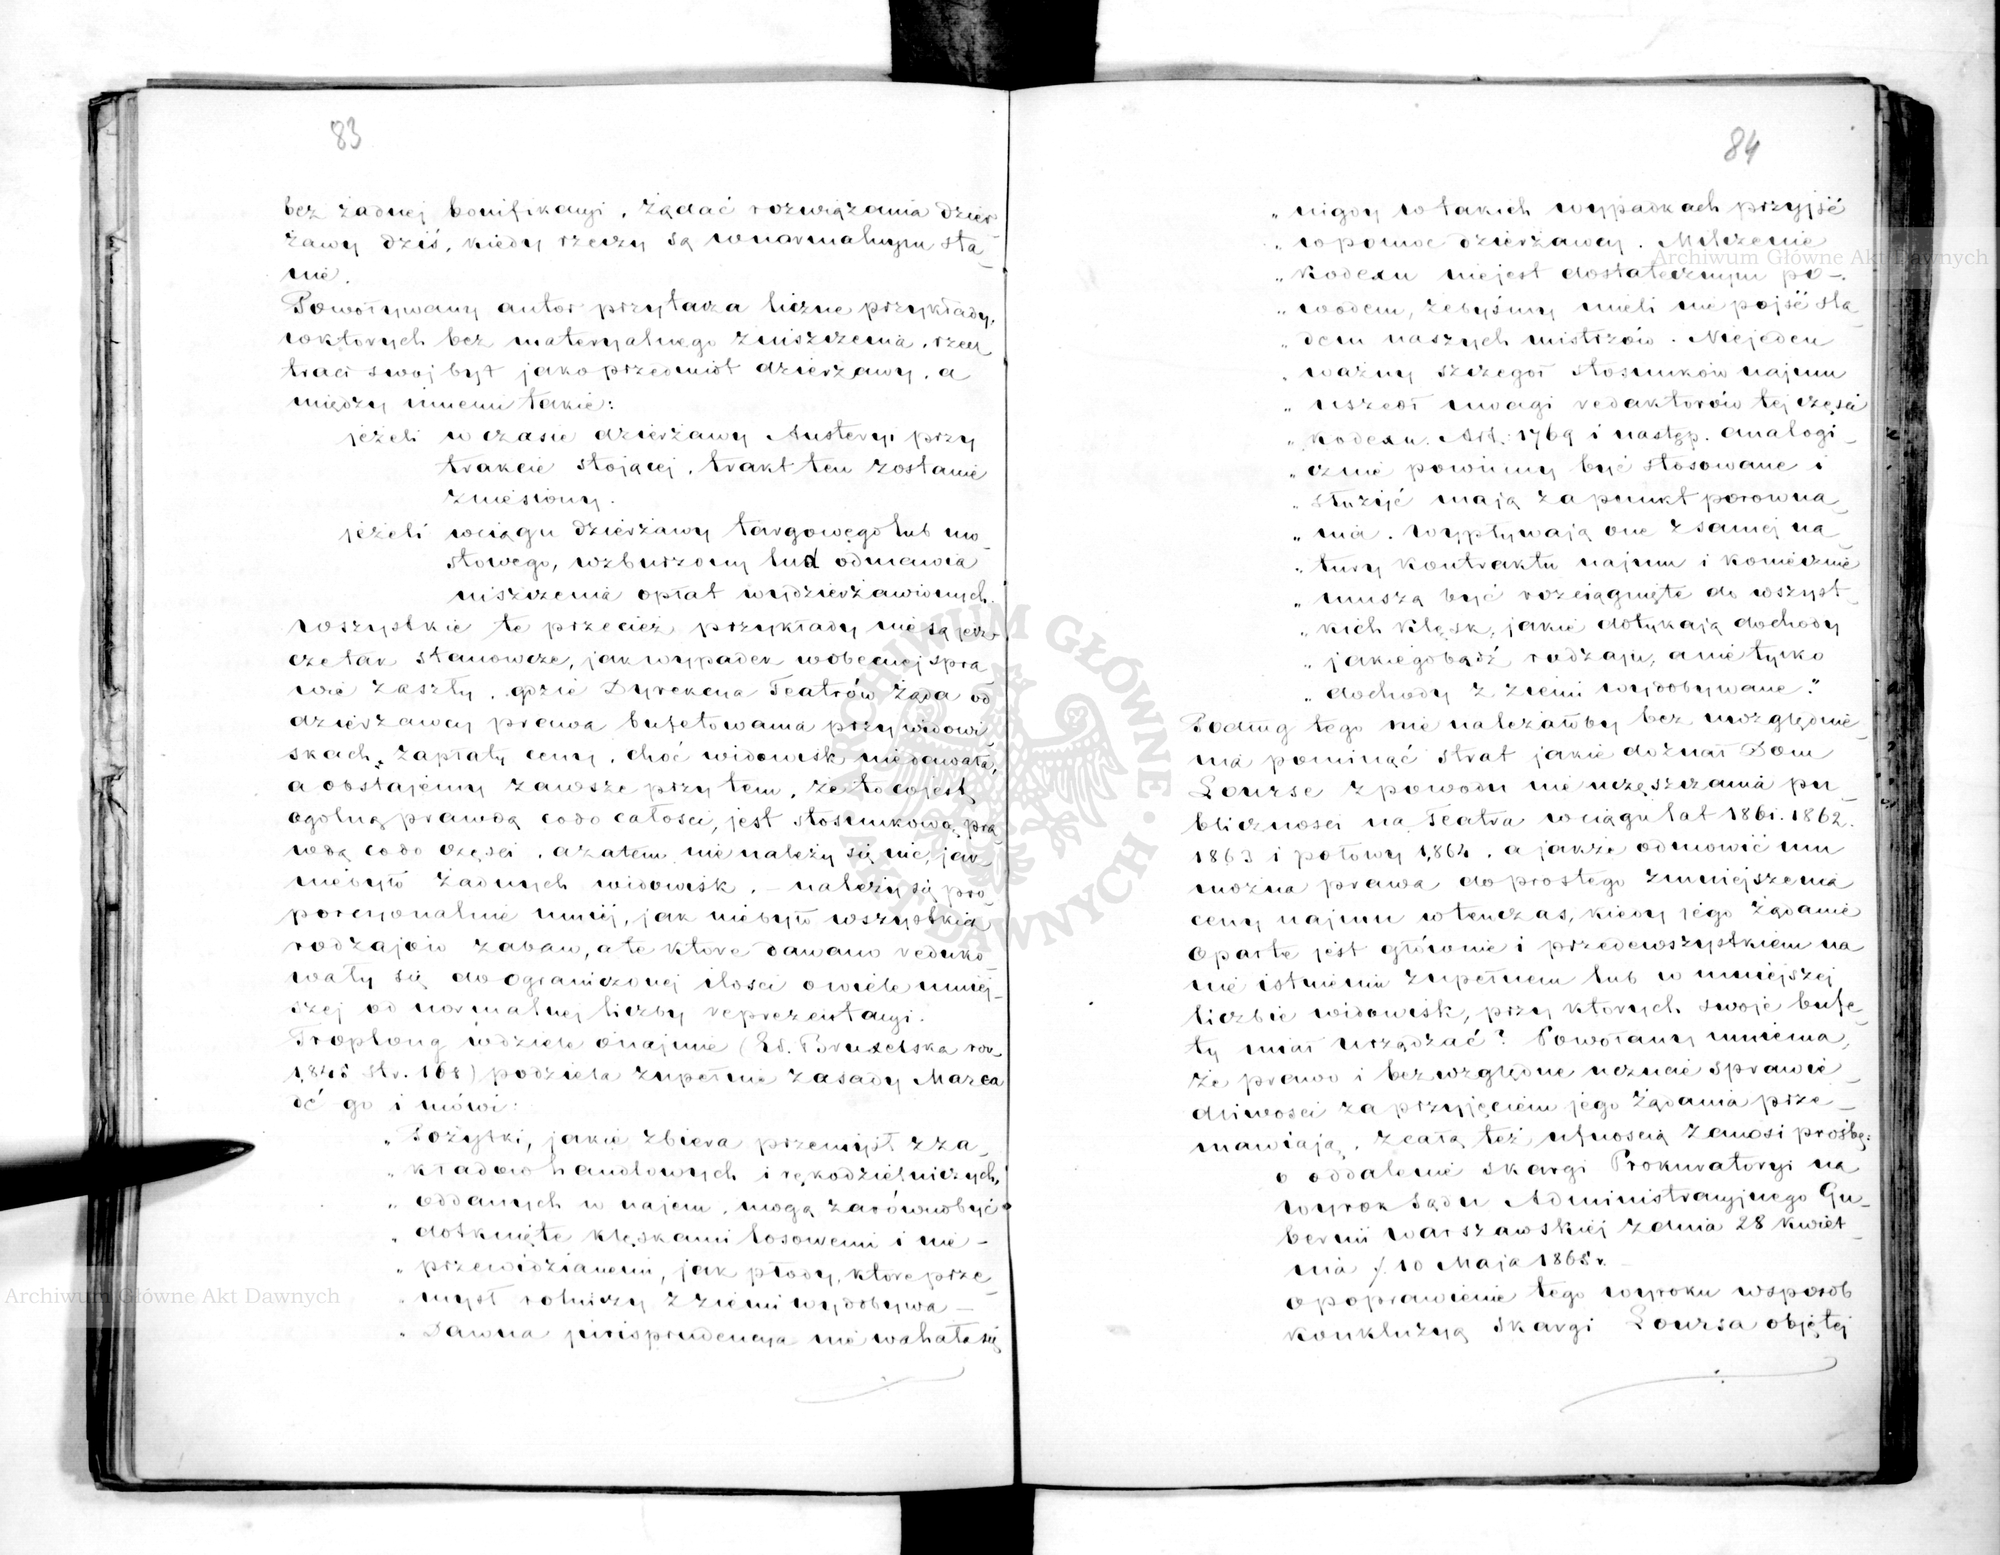 83
bez żadnej bonifikacyi, żądać rozwiązania dzier-
żawy dziś, kiedy rzeczy są w normalnym sta-
nie.
Powoływany autor przytacza liczne przykłady,
w których bez materyalnego zniszczenia, rzecz
traci swój byt jako przedmiot dzierżawy, a
między innemi takie:
jeżeli w czasie dzierżawy Austeryi przy
trakcie stojącej, trakt ten zostanie
zniesiony.
jeżeli w ciągu dzierżawy targowego lub mo-
stowego, wzburzony lud odmawia
uiszczenia opłat wydzierżawionych.
Wszystkie te przecież przykłady nie są jesz-
cze tak stanowcze, jak wypadek w obecnej spra
wie zaszły, gdzie Dyrekcya Teatrów żąda od
dzierżawcy prawa bufetowania przy widowi-
skach, zapłaty ceny, choć widowisk nie dawała,
a obstajemy zawsze przy tem, że to co jest
ogólną prawdą co do całości, jest stosunkową pra
wdą co do części, a zatem nie należy się nic, jak
nie było żadnych widowisk, – należy się pro
porcyonalnie mniej, jak nie było wszystkich
rodzajów zabaw, a te które dawano reduko-
wały się do ograniczonej ilości o wiele mniej-
szej od normalnej liczby reprezentacyi.
Troplong w dziele o najmie (Ed. Bruxelska rok
1845 str. 168) podziela zupełnie zasady Marca
dé go i mówi:
„ Pożytki, jakie zbiera przemysł z za-
„ kładów handlowych i rękodzielniczych,
„ oddanych w najem, mogą zarówno być
„ dotknięte klęskami losowemi i nie-
„ przewidzianemi, jak płody, które prze-
„ mysł rolniczy z ziemi wydobywa –
„ Dawna jurisprudencya nie wahała się
84
„ nigdy w takich wypadkach przyjść
„ w pomoc dzierżawcy. Milczenie
„ kodexu nie jest dostatecznym po-
„ wodem, żebyśmy mieli nie pójść śla-
„ dem naszych mistrzów. Niejeden
„ ważny szczegół stosunków najmu
„ uszedł uwagi redaktorów tej części
„ kodexu. Art. 1769 i następ. analogi-
„ cznie powinny być stosowane i
„ służyć mają za punkt porówna-
„ nia. Wypływają one z samej na-
„ tury kontraktu najmu i koniecznie
„ muszą być rozciągnięte do wszyst-
„ kich klęsk, jakie dotykają dochody
„ jakiegobądź rodzaju, a nie tylko
„ dochody z ziemi wydobywane.”
Podług tego nie należałoby bez uwzględnie-
nia pominąć strat jakie doznał Dom
Lourse z powodu nie uczęszczania pu-
bliczności na Teatra w ciągu lat 1861. 1862.
1863 i połowy 1864, a jakże odmówić mu
można prawa do prostego zmniejszenia
ceny najmu wtenczas, kiedy jego żądanie
oparte jest głównie i przedewszystkiem na
nie istnieniu zupełnem lub w mniejszej
liczbie widowisk, przy których swoje bufe-
ty miał urządzać? Powołany mniema,
że prawo i bezwzględne uczucie sprawie-
dliwości za przyjęciem jego żądania prze-
mawiają, z całą też ufnością zanosi prośbę:
o oddalenie skargi Prokuratoryi na
wyrok Sądu Administracyjnego Gu-
bernii Warszawskiej z dnia 28 Kwiet-
nia /. 10 Maja 1865 r.
o poprawienie tego wyroku w sposób
konkluzyą skargi Loursa objętej